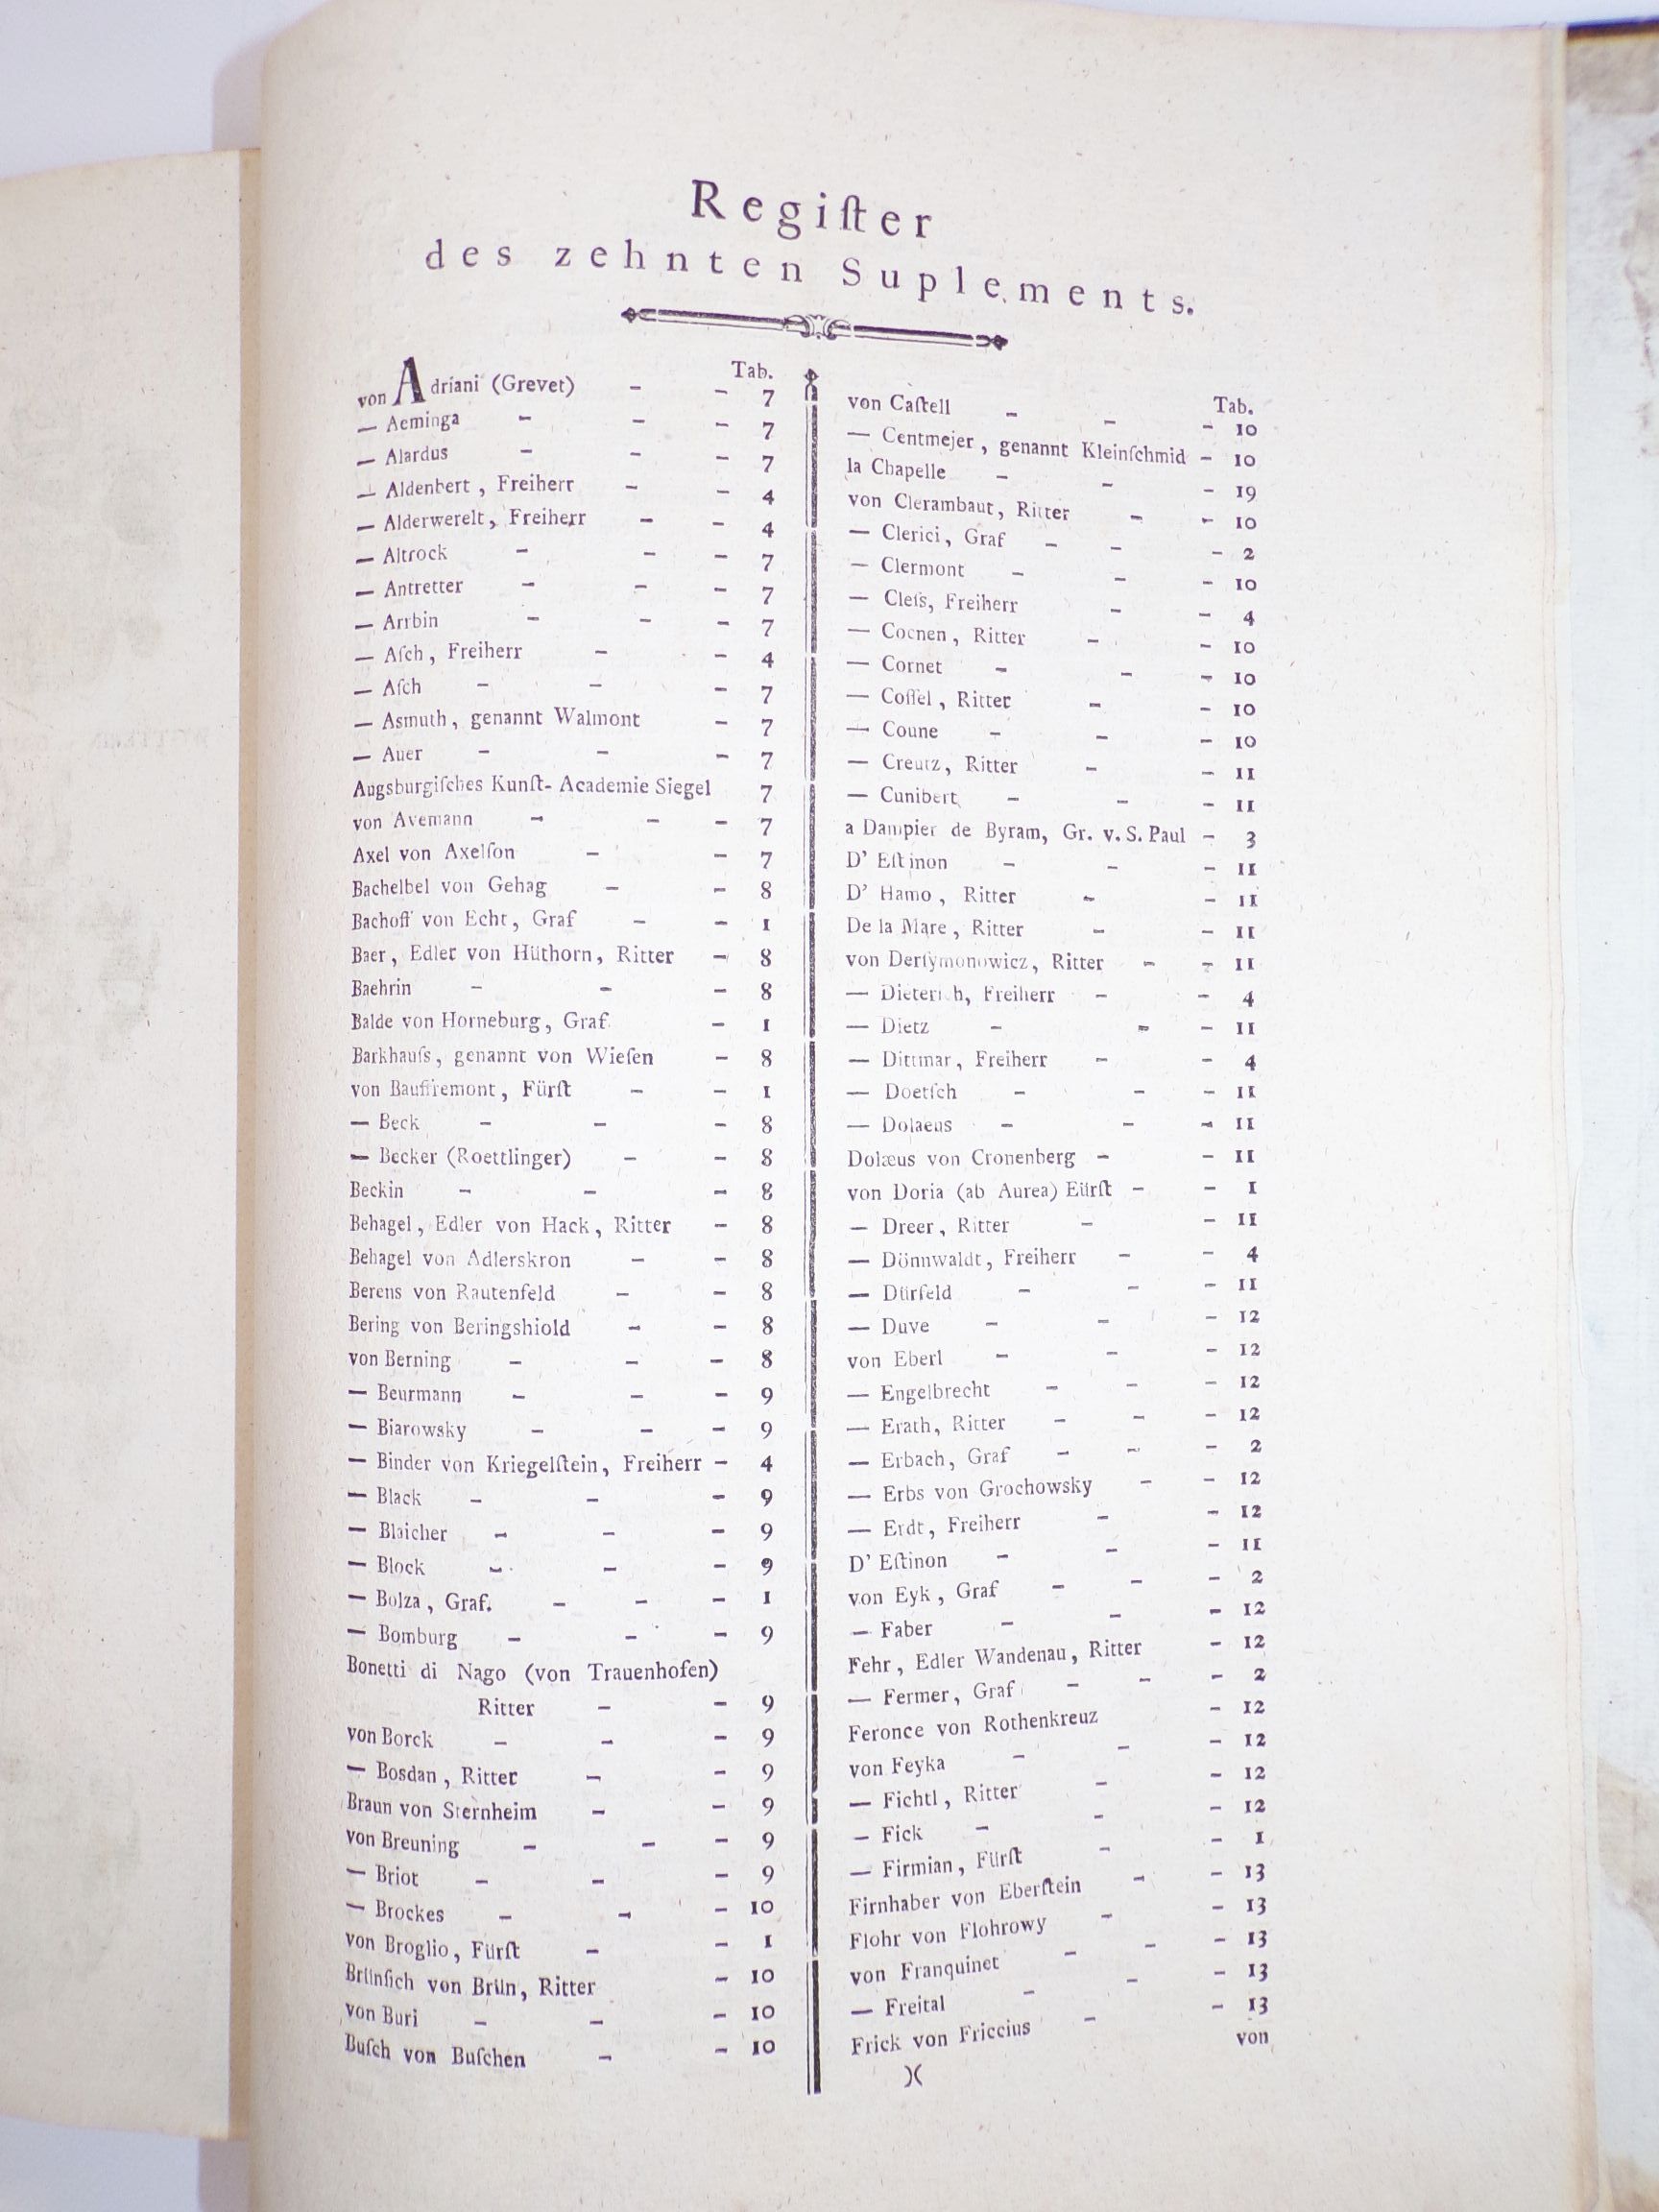 Regiſter
des zehnten Suplements.
Tab.
von Adriani (Grevet) - - 7
— Aeminga - - - 7
— Alardus - - - 7
— Aldenbert, Freiherr - - 4
— Alderwerelt, Freiherr - - 4
— Altrock - - - 7
— Antretter - - - 7
— Arrbin - - - 7
— Aſch, Freiherr - - 4
— Aſch - - - 7
— Asmuth, genannt Walmont - 7
— Auer - - - 7
Augsburgiſches Kunſt- Academie Siegel 7
von Avemann - - - 7
Axel von Axelſon - - 7
Bachelbel von Gehag - - 8
Bachoff von Echt, Graf - - 1
Baer, Edler von Hüthorn, Ritter - 8
Baehrin - - - 8
Balde von Horneburg, Graf - 1
Barkhauſs, genannt von Wieſen - 8
von Bauffremont, Fürſt - - 1
— Beck - - - 8
— Becker (Roettlinger) - - 8
Beckin - - - 8
Behagel, Edler von Hack, Ritter - 8
Behagel von Adlerskron - - 8
Berens von Rautenfeld - - 8
Bering von Beringshiold - - 8
von Berning - - - 8
— Beurmann - - - 9
— Biarowsky - - - 9
— Binder von Kriegelſtein, Freiherr - 4
— Black - - - 9
— Blaicher - - - 9
— Block - - - 9
— Bolza, Graf. - - - 1
— Bomburg - - - 9
Bonetti di Nago (von Trauenhofen)
Ritter - - 9
von Borck - - - 9
— Bosdan, Ritter - - 9
Braun von Sternheim - - 9
von Breuning - - - 9
— Briot - - - 9
— Brockes - - - 10
von Broglio, Fürſt - - 1
Brünſich von Brün, Ritter - 10
von Buri - - - 10
Buſch von Buſchen - - 10
Tab.
von Caſtell - - - 10
— Centmejer, genannt Kleinſchmid - 10
la Chapelle - - - 19
von Clerambaut, Ritter - - 10
— Clerici, Graf - - - 2
— Clermont - - - 10
— Cleſs, Freiherr - - 4
— Cocnen, Ritter - - 10
— Cornet - - - 10
— Coſſel, Ritter - - 10
— Coune - - - 10
— Creutz, Ritter - - 11
— Cunibert - - - 11
a Dampier de Byram, Gr. v. S. Paul - 3
D' Eſtinon - - - 11
D' Hamo, Ritter - - 11
De la Mare, Ritter - - 11
von Derſymonowicz, Ritter - - 11
— Dieterich, Freiherr - - 4
— Dietz - - - 11
— Dittmar, Freiherr - - 4
— Doetſch - - - 11
— Dolaeus - - - 11
Dolæus von Cronenberg - - 11
von Doria (ab Aurea) Eürſt - - 1
— Dreer, Ritter - - 11
— Dönnwaldt, Freiherr - - 4
— Dürfeld - - - 11
— Duve - - - 12
von Eberl - - - 12
— Engelbrecht - - - 12
— Erath, Ritter - - - 12
— Erbach, Graf - - - 2
— Erbs von Grochowsky - - 12
— Erdt, Freiherr - - 12
D' Eſtinon - - - 11
von Eyk, Graf - - - 2
— Faber - - - 12
Fehr, Edler Wandenau, Ritter - 12
— Fermer, Graf - - - 2
Feronce von Rothenkreuz - 12
von Feyka - - - 12
— Fichtl, Ritter - - 12
— Fick - - - 12
— Firmian, Fürſt - - 1
Firnhaber von Eberſtein - - 13
Flohr von Flohrowy - - 13
von Franquinet - - - 13
— Freital - - - 13
Frick von Friccius - - 13
von
)(